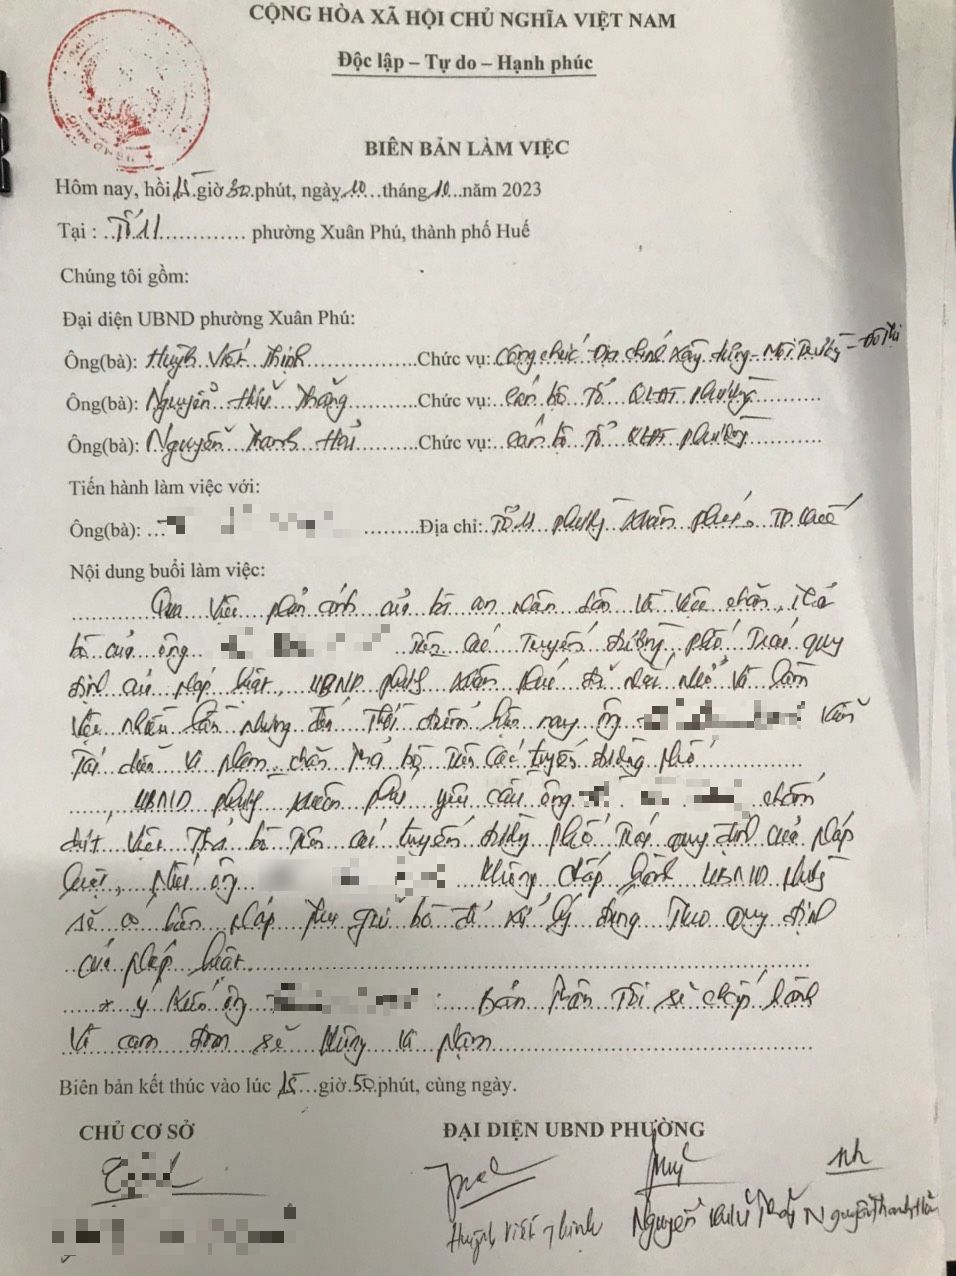 CỘNG HÒA XÃ HỘI CHỦ NGHĨA VIỆT NAM
Độc lập – Tự do – Hạnh phúc
BIÊN BẢN LÀM VIỆC
Hôm nay, hồi 15 giờ 30 phút, ngày 10 tháng 10 năm 2023
Tại : Tổ 11 phường Xuân Phú, thành phố Huế
Chúng tôi gồm:
Đại diện UBND phường Xuân Phú:
Ông(bà): Huỳnh Viết Thịnh Chức vụ: Công chức Địa chính Xây dựng - Môi Trường - Đô Thị
Ông(bà): Nguyễn Hữu Thắng Chức vụ: cán bộ Tổ QLĐT phường
Ông(bà): Nguyễn Thanh Hải Chức vụ: cán bộ Tổ QLĐT phường
Tiến hành làm việc với:
Ông(bà): Địa chỉ: Tổ 11 phường Xuân phú, TP Huế
Nội dung buổi làm việc:
Qua việc phản ánh của bà con nhân dân về việc chăn, thả
bò của ông trên các tuyến đường phố trái quy
định của pháp luật, UBND phường Xuân Phú đã nhắc nhở và làm
việc nhiều lần nhưng đến thời điểm hiện nay ông vẫn
tái diễn vi phạm chăn thả bò trên các tuyến đường phố
UBND phường Xuân Phú yêu cầu ông chấm
dứt việc thả bò trên các tuyến đường phố trái quy định của pháp
luật, nếu ông không chấp hành UBND phường
sẽ có biện pháp thu giữ bò để xử lý đúng theo quy định
của pháp luật
* ý kiến ông : Bản thân tôi sẽ chấp hành
và cam đoan sẽ không vi phạm
Biên bản kết thúc vào lúc 15 giờ 50 phút, cùng ngày.
CHỦ CƠ SỞ ĐẠI DIỆN UBND PHƯỜNG
Huỳnh Viết Thịnh Nguyễn Hữu Thắng Nguyễn Thanh Hải